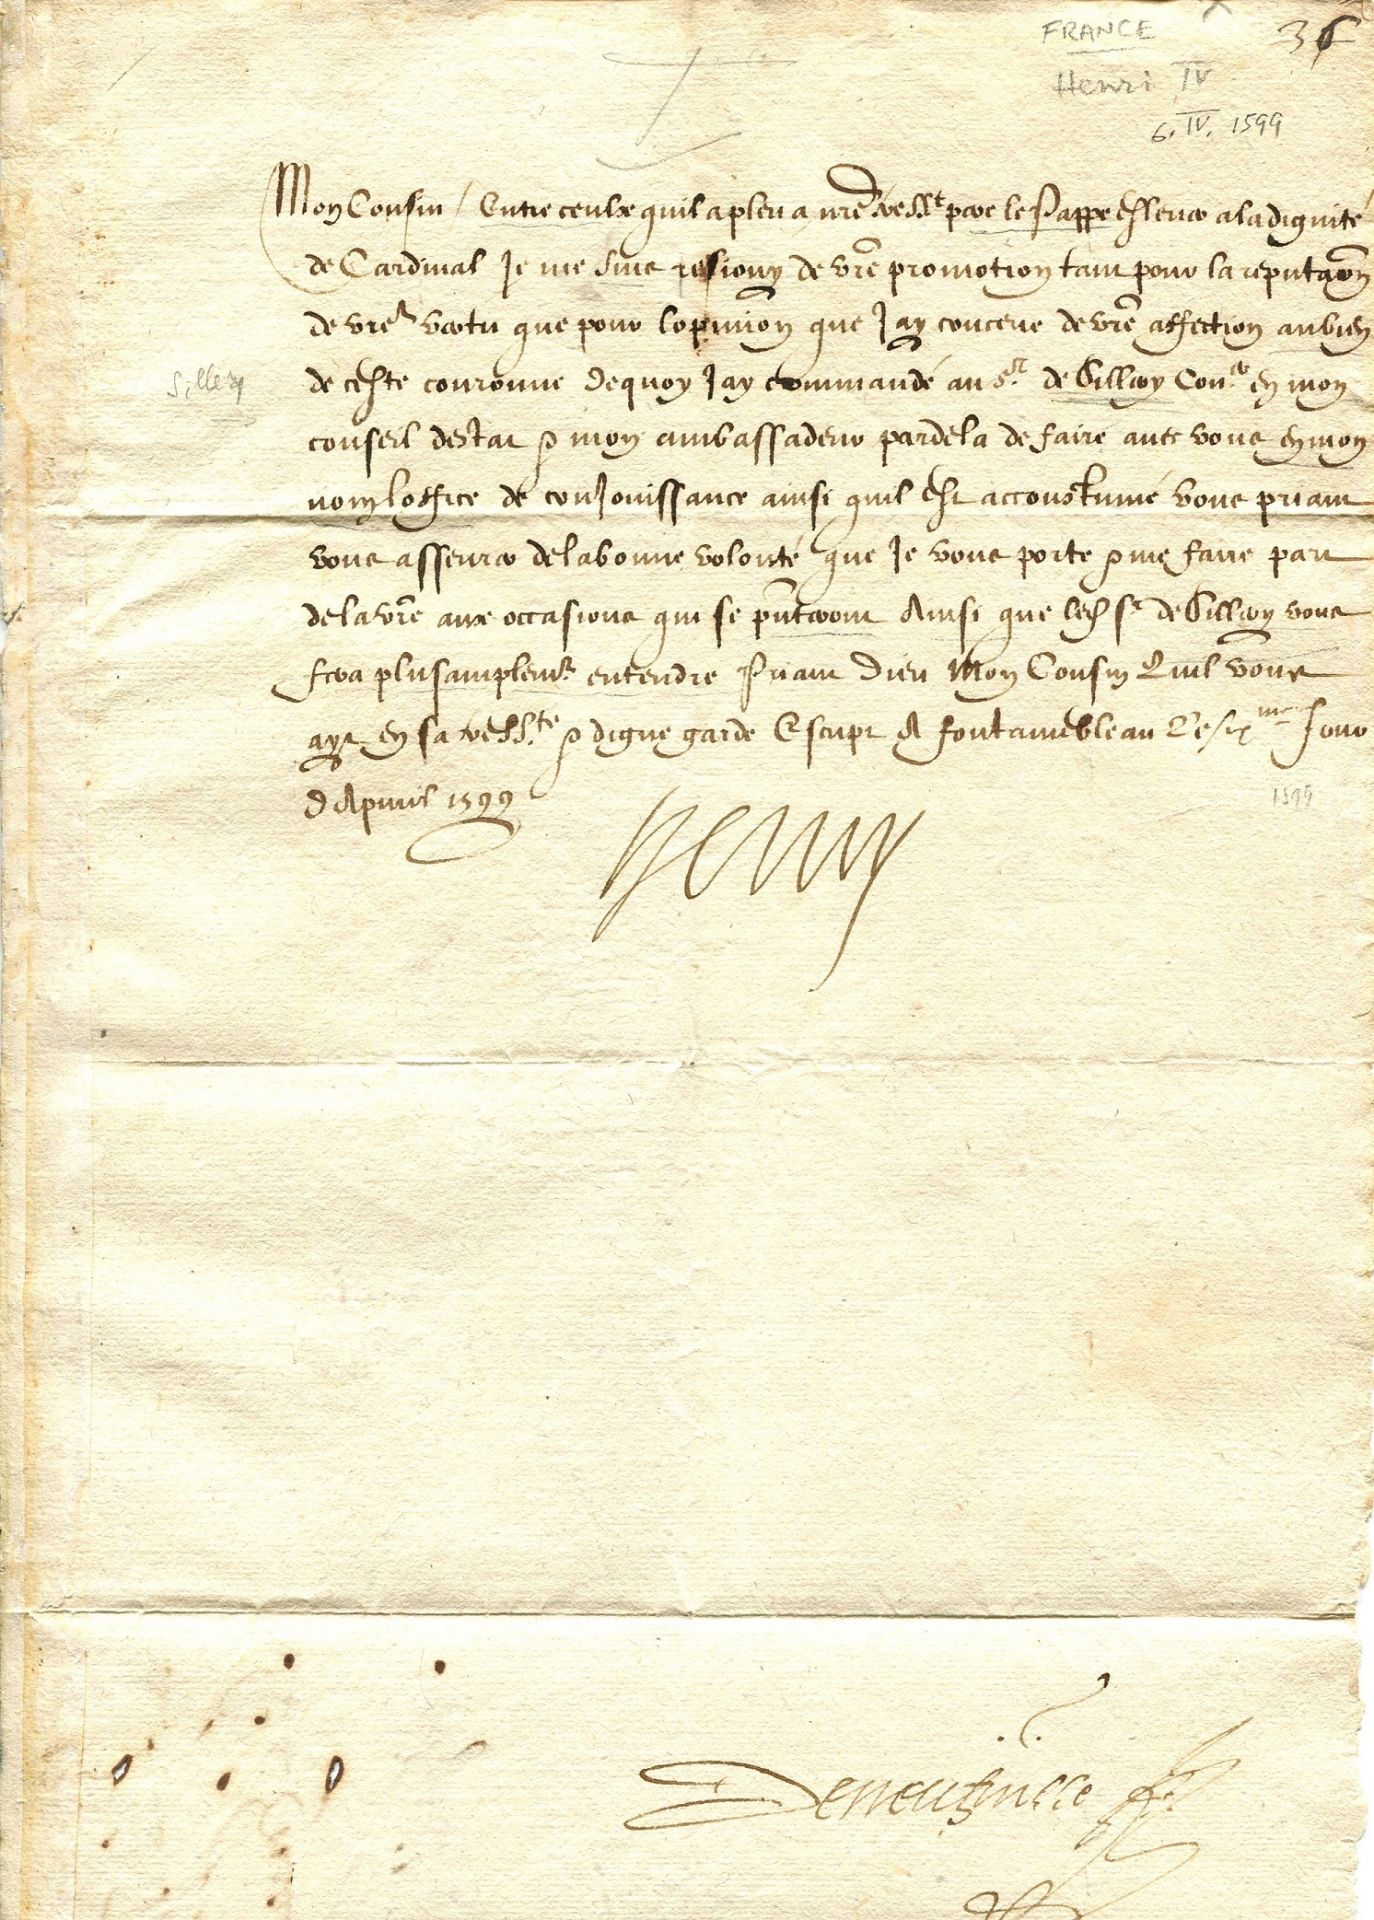 FRANCE
36
Henri IV
6. IV. 1599
Mon Cousin / Entre ceulx quil a pleu a nre tresst pere le Pappe eslever a la dignité
de Cardinal Je me suis resiouy de vre promotion tant pour la reputaon
de vre vertu que pour lopinion que Jay conceue de vre affection au bien
Sillery
de ceste couronne Dequoy Jay commandé au sr de Sillery Coner en mon
conseil destat & mon ambassadeur pardela de faire avec vous en mon
nom loffice de conJouissance ainsi quil est accoustumé Vous priant
vous asseurer de la bonne volonté que Je vous porte & me faire part
de la vre aux occasions qui se pnteront Ainsi que led sr de Sillery vous
fera plus amplemt entendre Priant Dieu Mon Cousin Quil vous
ayt en sa tresste & digne garde Escript A fontainebleau Le sixme Jour
dApvril 1599
1599
Henry
Deneufville